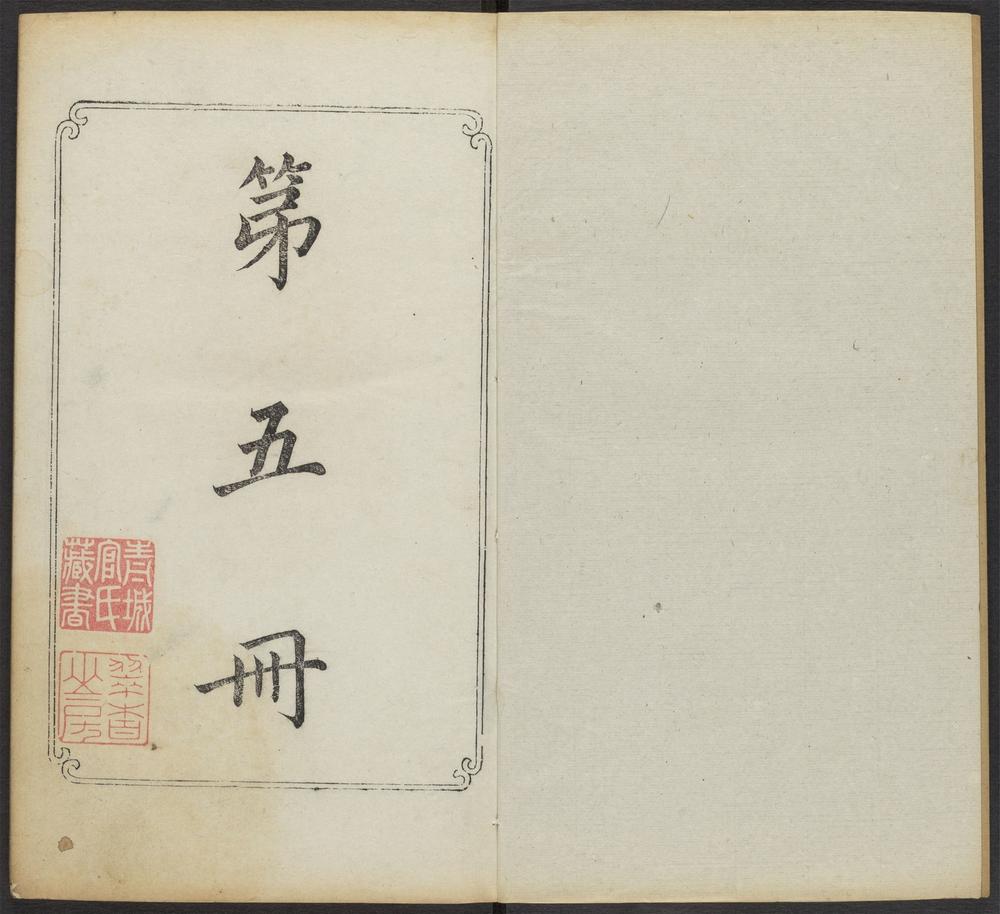 第五冊
青城
官氏
藏書